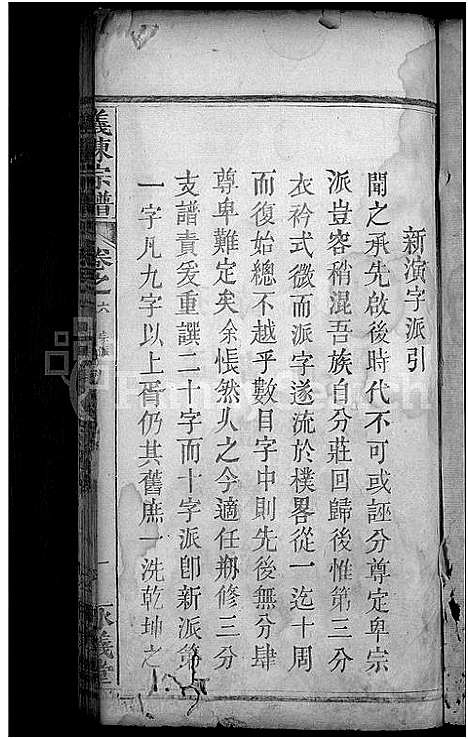 新演字派引
聞之承先啟後時代不可或誣分尊定卑宗
派豈容稍混吾族自分莊回歸後惟第三分
衣衿式微而派字遂流於樸畧從一迄十周
而復始總不越乎數目字中則先後無分肆
尊卑難定矣余悵然久之今適任刱修三分
支譜責爰重譔二十字而十字派卽新派第
一字凡九字以上胥仍其舊庶一洗乾坤之
義陳宗譜 卷之六
一
義堂